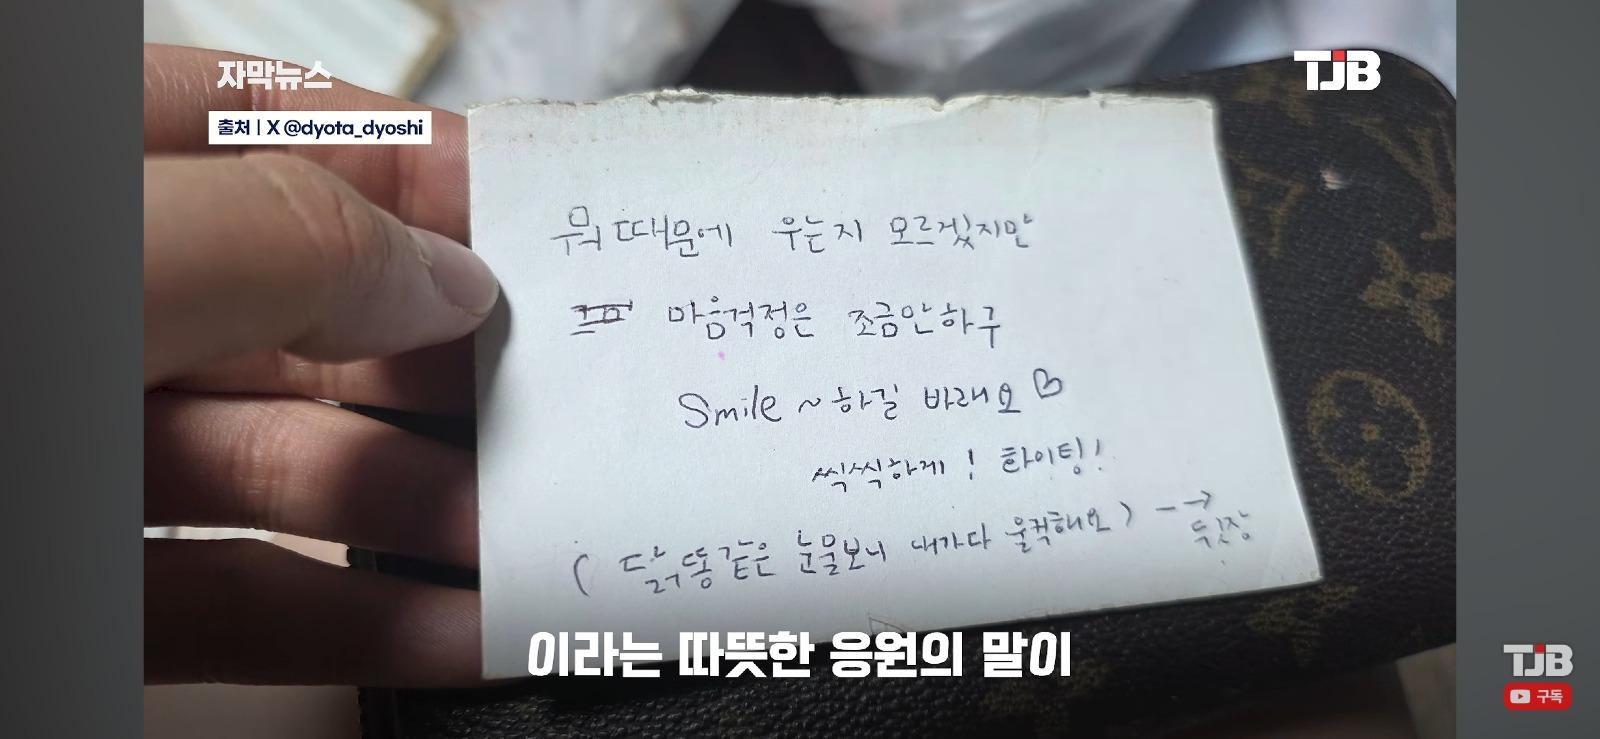 자막뉴스
TJB
출처 | X @dyota_dyoshi
뭐 때문에 우는지 모르겠지만
마음걱정은 조금안하구
Smile ~ 하길 바래요♡
씩씩하게! 화이팅!
( 닭똥같은 눈물보니 내가다 울컥해요 ) -->
뒷장
이라는 따뜻한 응원의 말이
TJB
구독